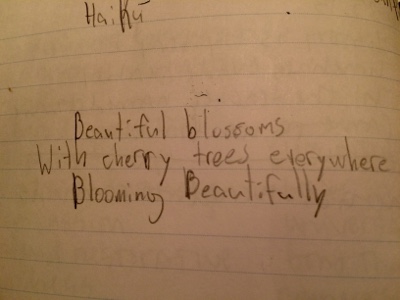 Haiku
Beautiful blossoms
With cherry trees everywhere
Blooming Beautifully